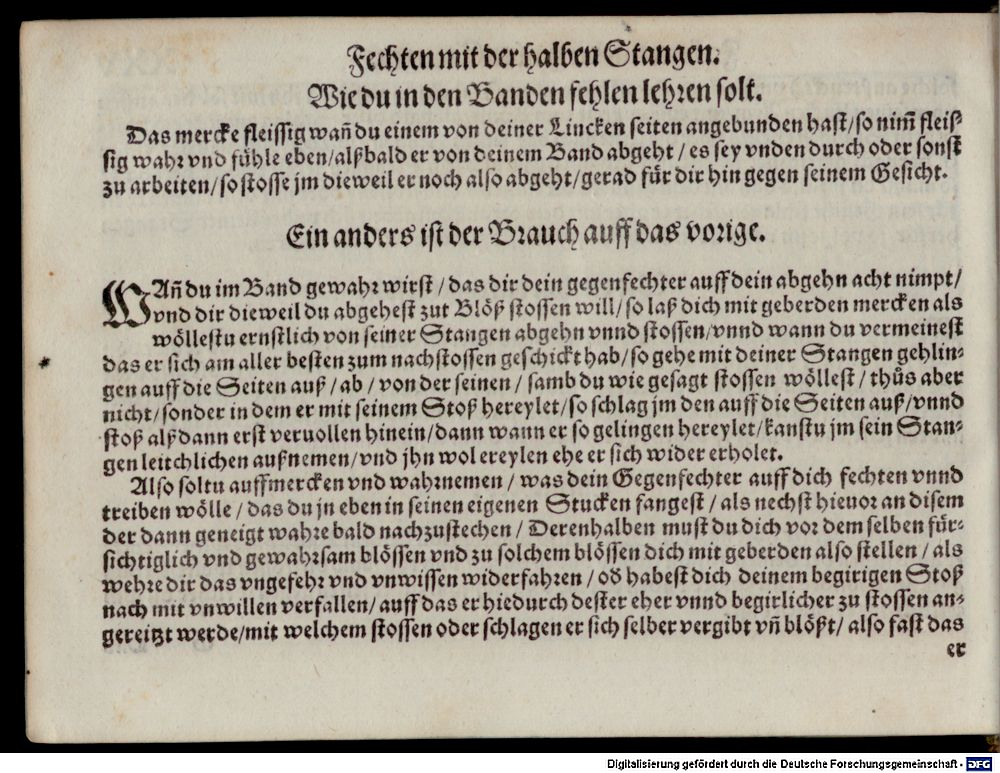 Fechten mit der halben Stangen.
Wie du in den Banden fehlen lehren solt.
Das mercke fleissig wañ du einem von deiner Lincken seiten angebunden hast/so nim̄ fleis⸗
sig wahr vnd fühle eben/alßbald er von deinem Band abgeht / es sey vnden durch oder sonst
zu arbeiten/so stosse jm dieweil er noch also abgeht/gerad für dir hin gegen seinem Gesicht.
Ein anders ist der Brauch auff das vorige.
WAñ du im Band gewahr wirst / das dir dein gegenfechter auff dein abgehn acht nimpt/
vnd dir dieweil du abgehest zut Blöß stossen will/so laß dich mit geberden mercken als
wöllestu ernstlich von seiner Stangen abgehn vnnd stossen/vnnd wann du vermeinest
das er sich am aller besten zum nachstossen geschickt hab/so gehe mit deiner Stangen gehlin⸗
gen auff die Seiten auß/ab / von der seinen / samb du wie gesagt stossen wöllest / thůs aber
nicht/sonder in dem er mit seinem Stoß hereylet/so schlag jm den auff die Seiten auß/vnnd
stoß alßdann erst veruollen hinein/dann wann er so gelingen hereylet/kanstu jm sein Stan⸗
gen leitchlichen außnemen/vnd jhn wol ereylen ehe er sich wider erholet.
Also soltu auffmercken vnd wahrnemen / was dein Gegenfechter auff dich fechten vnnd
treiben wölle / das du jn eben in seinen eigenen Stucken fangest / als nechst hieuor an disem
der dann geneigt wahre bald nachzustechen / Derenhalben must du dich vor dem selben für⸗
sichtiglich vnd gewahrsam blössen vnd zu solchem blössen dich mit geberden also stellen / als
wehre dir das vngefehr vnd vnwissen widerfahren / od̄ habest dich deinem begirigen Stoß
nach mit vnwillen verfallen/ auff das er hiedurch dester eher vnnd begirlicher zu stossen an⸗
gereitzt werde/mit welchem stossen oder schlagen er sich selber vergibt vñ blößt/ also fast das
er
Digitalisierung gefördert durch die Deutsche Forschungsgemeinschaft - DFG